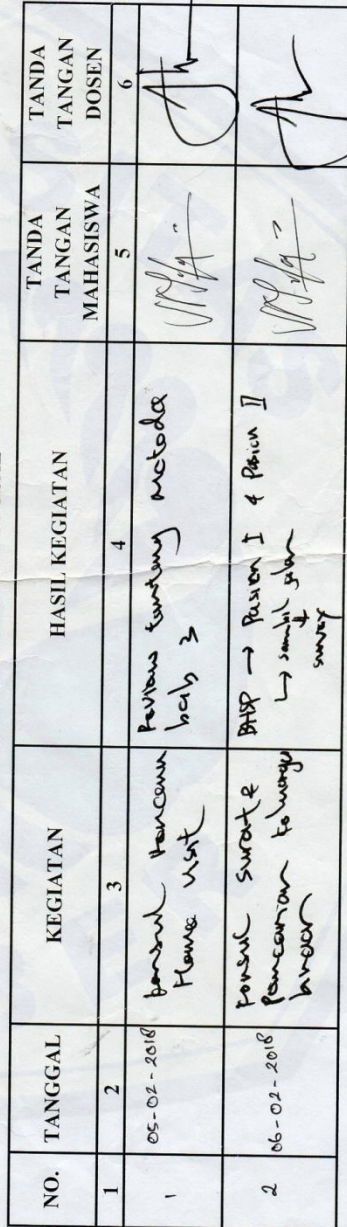 NO.
TANGGAL
KEGIATAN
HASIL KEGIATAN
TANDA
TANGAN
MAHASISWA
TANDA
TANGAN
DOSEN
1
2
3
4
5
6
1
05-02-2018
konsul rencana
Home visit
Review tentang metode
bab 3
2
06-02-2018
konsul surat &
Pencarian keluarga
binaan
BHSP → Pasien I & Pasien II
↳ sambil jalan
survey